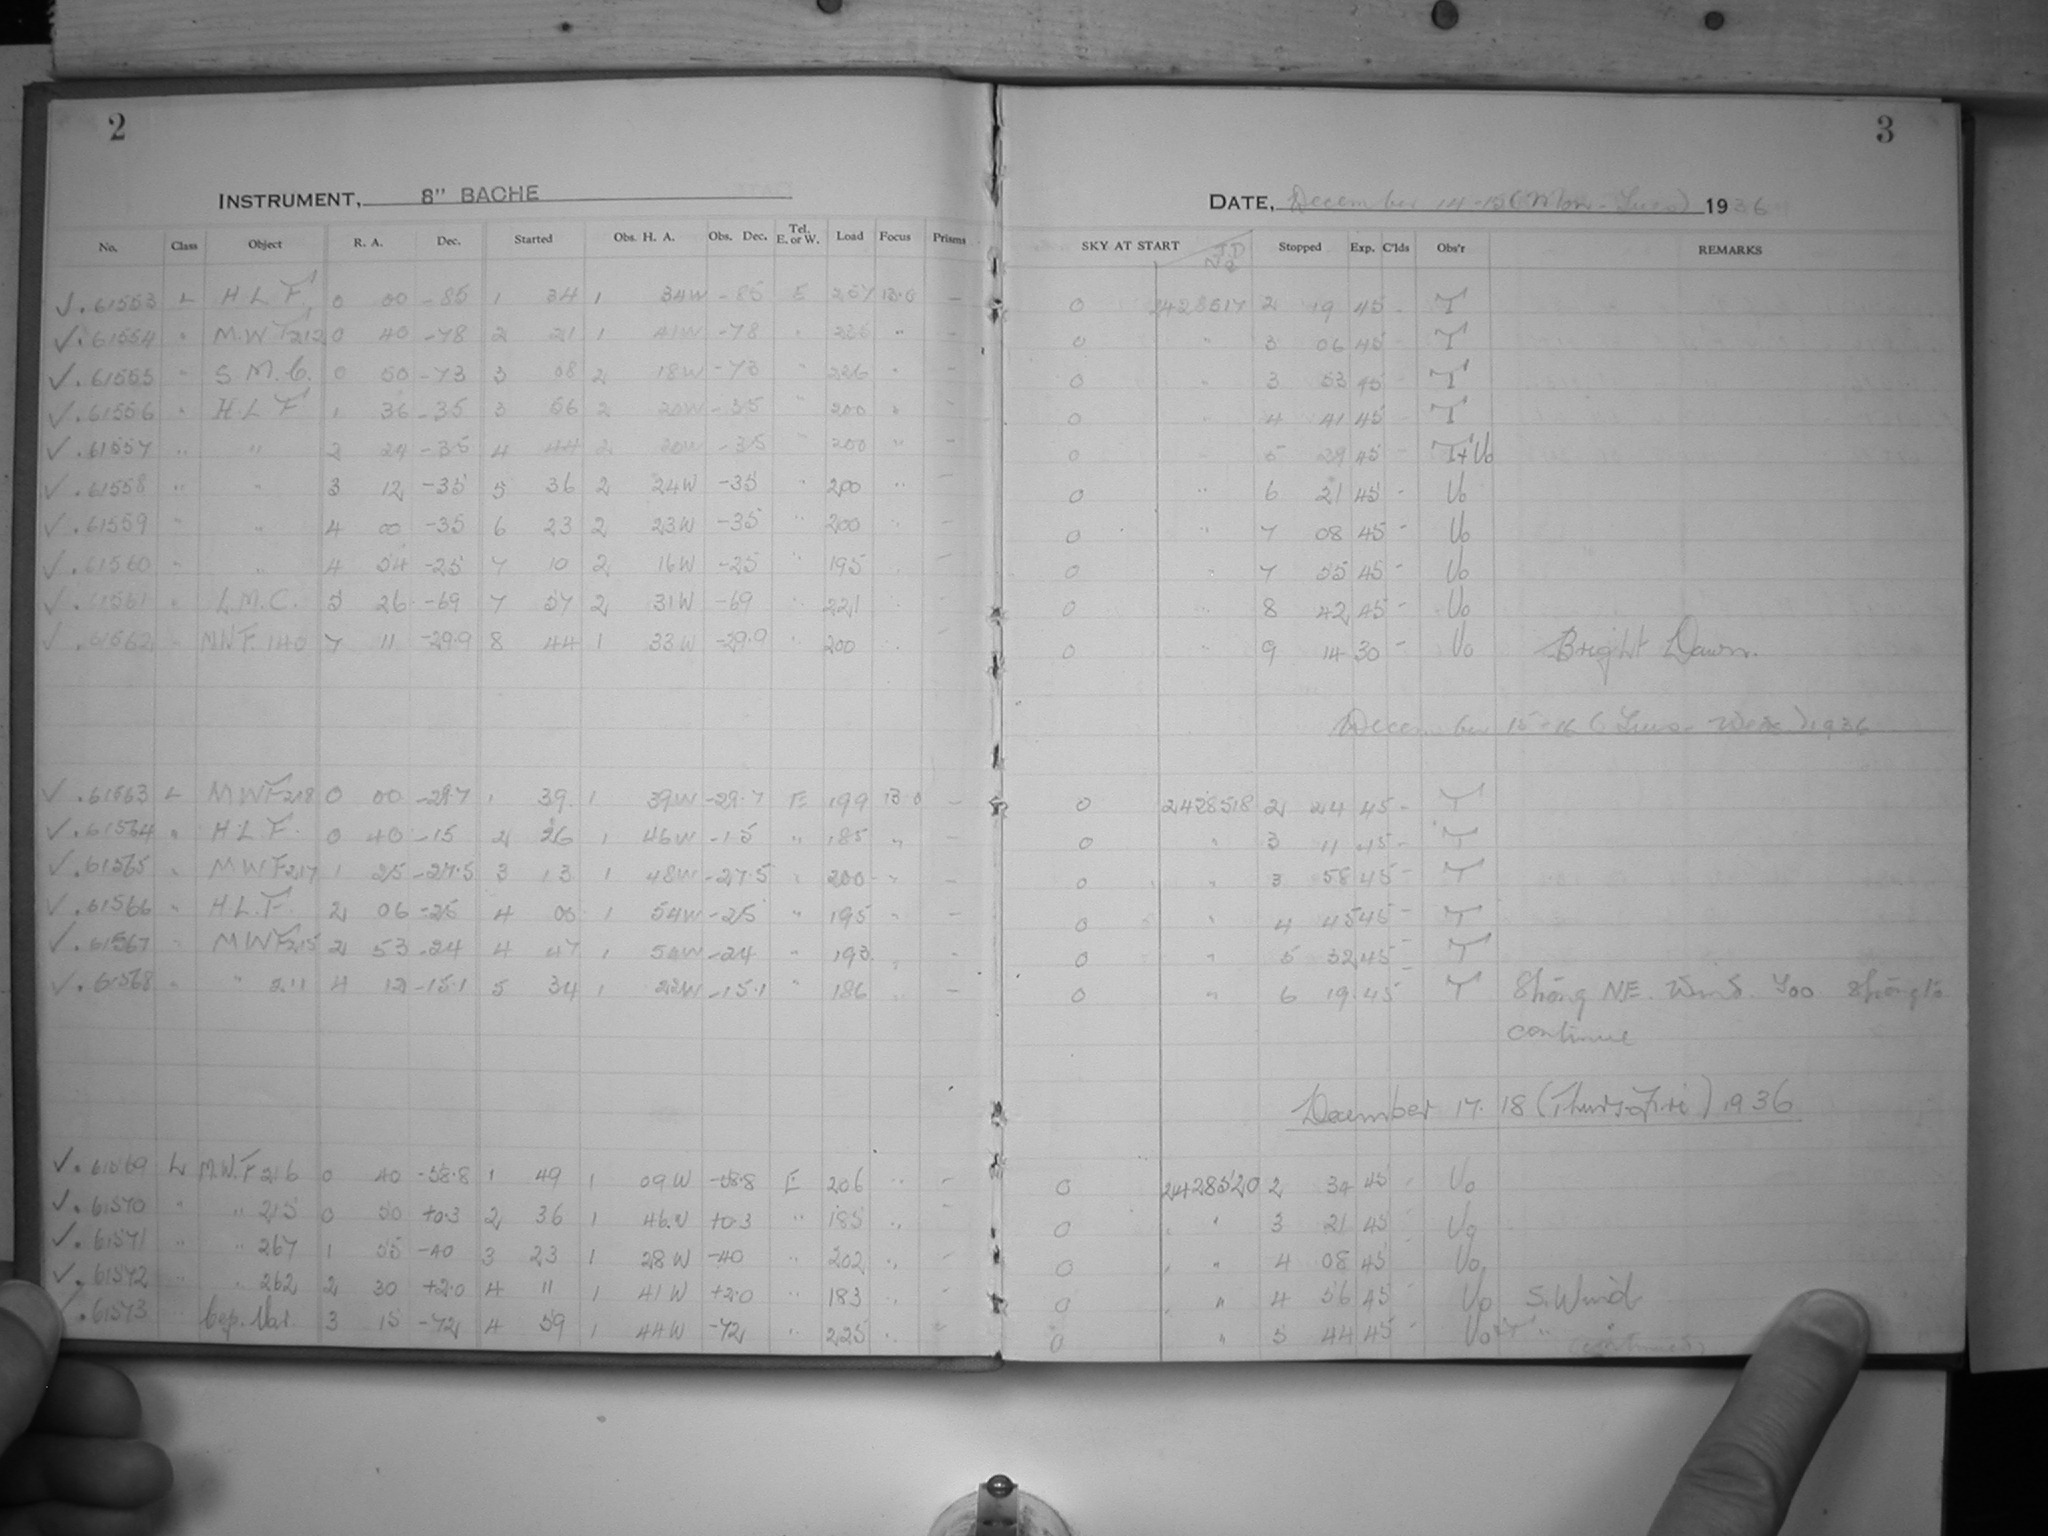 2
INSTRUMENT, 8" BACHE
No. Class Object R. A. Dec. Started Obs. H. A. Obs. Dec. Tel. E. or W. Load Focus Prisms
✓ . 61553 L H L F 0 00 -85 1 34 1 34W -85 E 257 13.0 -
✓ . 61554 " M.W F 212 0 40 -78 2 21 1 41W -78 " 226 " -
✓ . 61555 " S. M. C. 0 50 -73 3 08 2 18W -73 " 226 " -
✓ . 61556 " H L F 1 36 -35 3 56 2 20W -35 " 200 " -
✓ . 61557 " " 2 24 -35 4 44 2 20W -35 " 200 " -
✓ . 61558 " " 3 12 -35 5 36 2 24W -35 " 200 " -
✓ . 61559 " " 4 00 -35 6 23 2 23W -35 " 200 " -
✓ . 61560 " " 4 54 -25 7 10 2 16W -25 " 195 " -
✓ . 61561 " L.M.C. 5 26 -69 7 57 2 31W -69 " 221 " -
✓ . 61562 " M.W F. 140 7 11 -29.9 8 44 1 33W -29.9 " 200 " -
✓ . 61563 L M W F 218 0 00 -29.7 1 39 1 39W -29.7 E 199 13.0 -
✓ . 61564 " H L F. 0 40 -15 2 26 1 46W -15 " 185 " -
✓ . 61565 " M W F 217 1 25 -27.5 3 13 1 48W -27.5 " 200 " -
✓ . 61566 " H L F. 2 06 -25 4 00 1 54W -25 " 195 " -
✓ . 61567 " M W F 215 2 53 -24 4 47 1 54W -24 " 193 " -
✓ . 61568 " " 211 4 12 -15.1 5 34 1 22W -15.1 " 186 " -
✓ . 61569 L M.W.F 216 0 40 -58.8 1 49 1 09W -58.8 E 206 " -
✓ . 61570 " " 215 0 50 +0.3 2 36 1 46W +0.3 " 185 " -
✓ . 61571 " " 267 1 55 -40 3 23 1 28W -40 " 202 " -
✓ . 61572 " " 262 2 30 +2.0 4 11 1 41W +2.0 " 183 " -
✓ . 61573 " Cep. Var 3 15 -72 4 59 1 44W -72 " 225 " -
3
DATE, December 14-15 (Mon - Tues) 1936
SKY AT START J.D No Stopped Exp. C'lds Obs'r REMARKS
0 2428517 2 19 45 - T
0 " 3 06 45 - T
0 " 3 53 45 - T
0 " 4 41 45 - T
0 " 5 29 45 - T+Vo
0 " 6 21 45 - Vo
0 " 7 08 45 - Vo
0 " 7 55 45 - Vo
0 " 8 42 45 - Vo
0 " 9 14 30 - Vo Bright Dawn.
December 15-16 (Tues - Wed) 1936
0 2428518 2 24 45 - T
0 " 3 11 45 - T
0 " 3 58 45 - T
0 " 4 45 45 - T
0 " 5 32 45 - T
0 " 6 19 45 - T Strong N.E. Wind. Too strong to
continue
December 17-18 (Thurs-Fri) 1936
0 2428520 2 34 45 - Vo
0 " 3 21 45 - Vo
0 " 4 08 45 Vo
0 " 4 56 45 - Vo S. Wind
0 " 5 44 45 - Vo+T "
(continued)